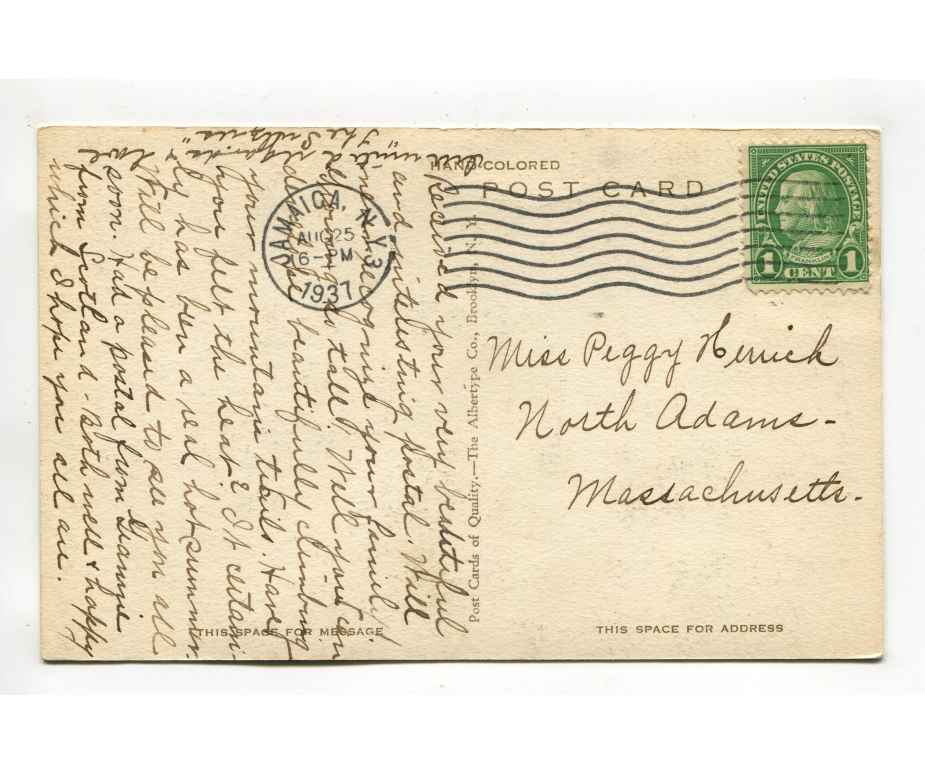 HAND-COLORED
POST CARD
UNITED STATES POSTAGE
FRANKLIN
1 CENT 1
JAMAICA, N.Y. 3
AUG 25
6-PM
1937
Received your very beautiful
and interesting postal. Will
I recognize your family,
growing so tall? Will you
describe beautifully climbing
your mountain trails. Have
you felt the heat? It certain-
ly has been a real hot summer.
Will be pleased to see you all
soon. Had a postal from Grannie
from Scotland - both well & happy
which I hope you all are.
& love
The
Post Cards of Quality.—The Albertype Co., Brooklyn, N. Y.
Miss Peggy Herrick
North Adams-
Massachusetts-
THIS SPACE FOR MESSAGE
THIS SPACE FOR ADDRESS